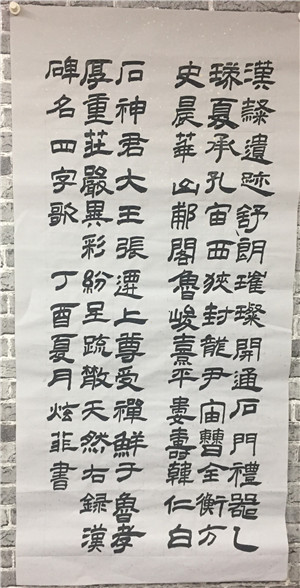 漢隸遺迹舒朗璀璨開通石門禮器乙
瑛夏承孔宙西狹封龍尹宙曹全衡方
史晨華山郙閣魯峻熹平婁壽韓仁白
石神君大王張遷上尊受禪鮮于魯孝
厚重莊嚴異彩紛呈疏散天然右録漢
碑名四字歌 丁酉夏月炫非書